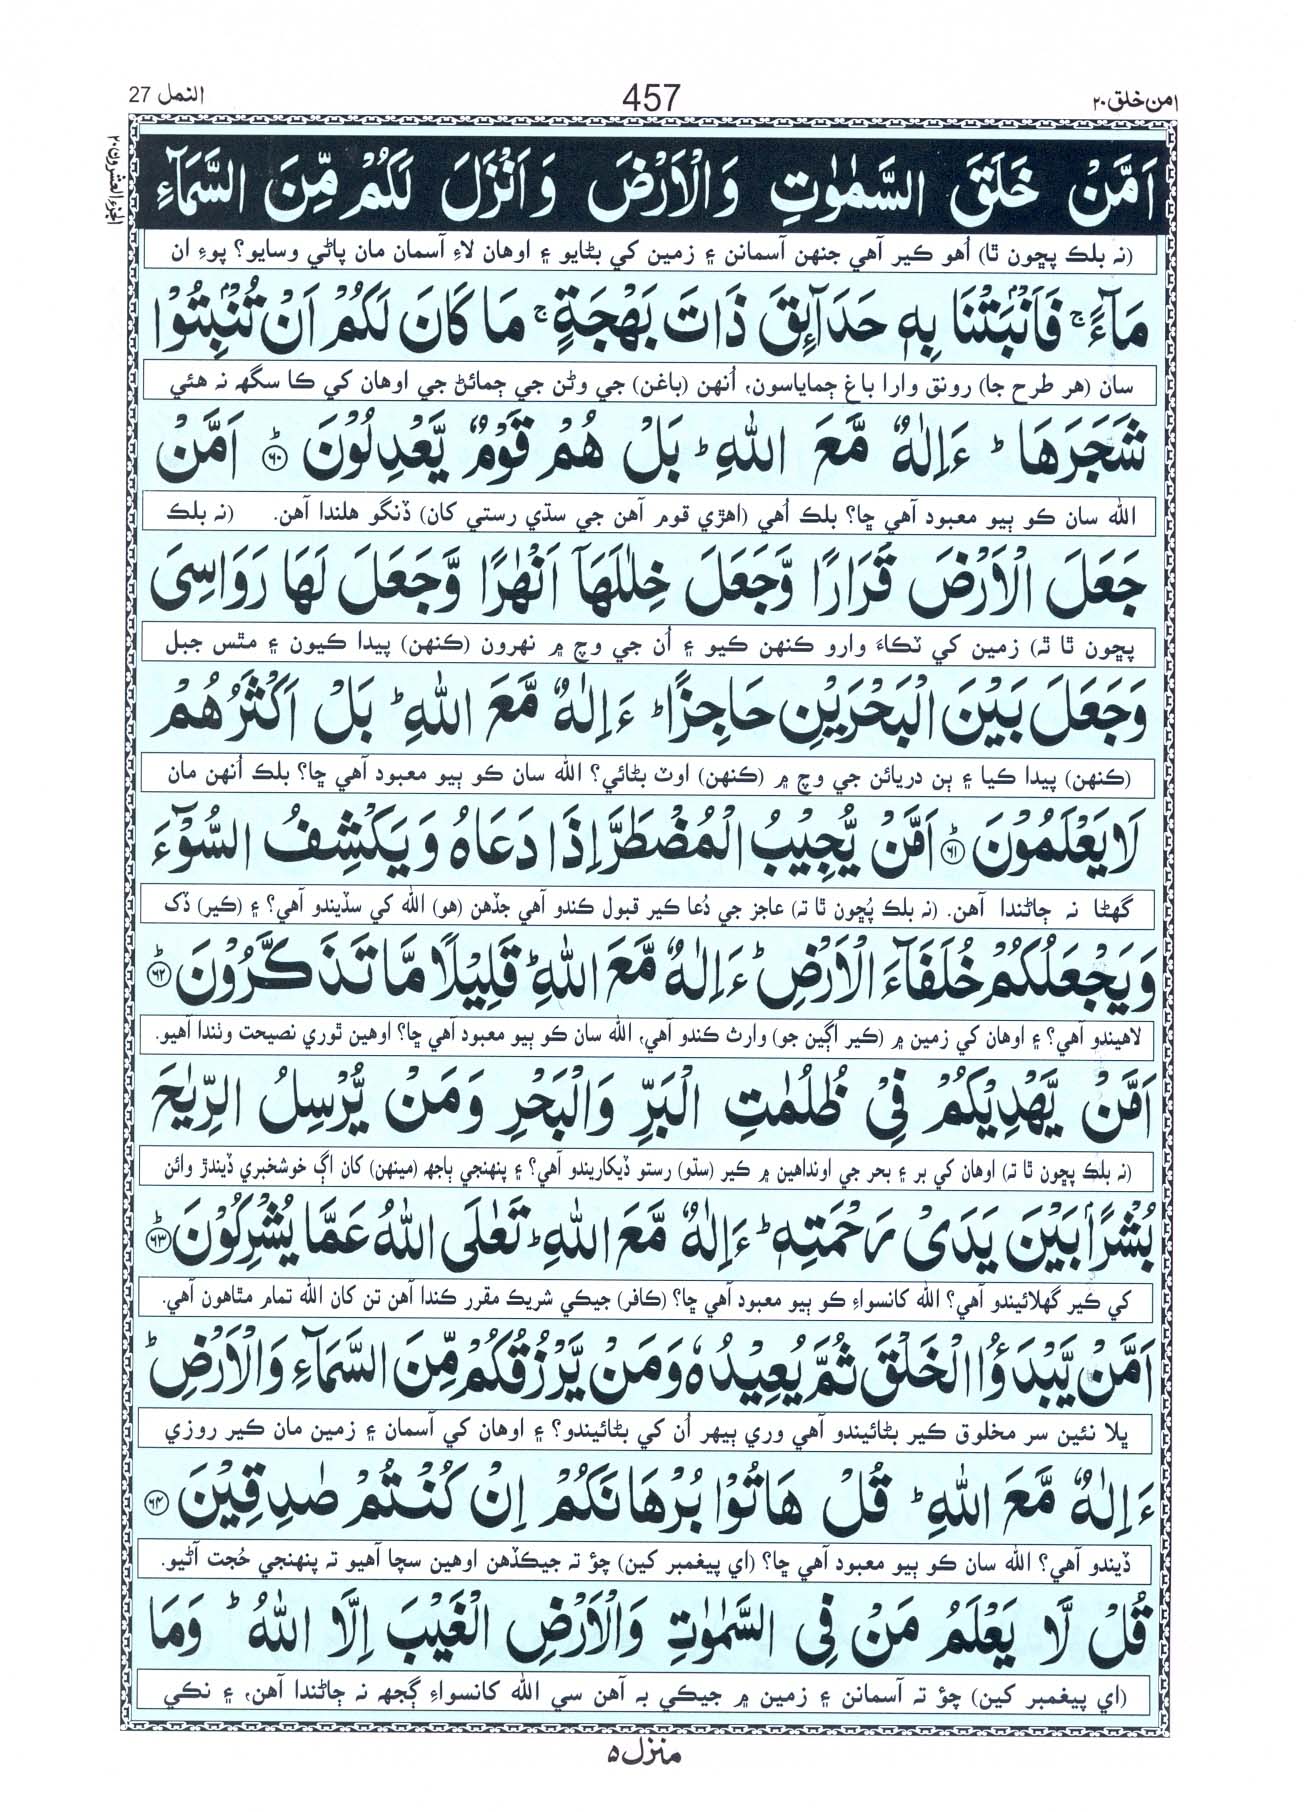 امن خلق ۲۰
457
النمل 27
الجزء العشرون ۲۰
اَمَّنْ خَلَقَ السَّمٰوٰتِ وَالْاَرْضَ وَاَنْزَلَ لَكُمْ مِّنَ السَّمَآءِ
(نہ بلڪ پڇون ٿا) اُهو ڪير آهي جنهن آسمانن ۽ زمين کي بڻايو ۽ اوهان لاءِ آسمان مان پاڻي وسايو؟ پوءِ ان
مَآءً ۚ فَاَنْۢبَتْنَا بِهٖ حَدَآئِقَ ذَاتَ بَهْجَةٍ ۚ مَا كَانَ لَكُمْ اَنْ تُنْۢبِتُوْا
سان (هر طرح جا) رونق وارا باغ ڄماياسون، اُنهن (باغن) جي وڻن جي ڄمائڻ جي اوهان کي ڪا سگهہ نہ هئي
شَجَرَهَا ؕ ءَاِلٰهٌ مَّعَ اللّٰهِ ؕ بَلْ هُمْ قَوْمٌ يَّعْدِلُوْنَ ؕ۶۰ اَمَّنْ
الله سان ڪو ٻيو معبود آهي ڇا؟ بلڪ اُهي (اهڙي قوم آهن جي سڌي رستي کان) ڏنگو هلندا آهن. (نہ بلڪ
جَعَلَ الْاَرْضَ قَرَارًا وَّجَعَلَ خِلٰلَهَاۤ اَنْهٰرًا وَّجَعَلَ لَهَا رَوَاسِيَ
پڇون ٿا تہ) زمين کي ٽڪاءَ وارو ڪنهن ڪيو ۽ اُن جي وچ ۾ نهرون (ڪنهن) پيدا ڪيون ۽ مٿس جبل
وَجَعَلَ بَيْنَ الْبَحْرَيْنِ حَاجِزًا ؕ ءَاِلٰهٌ مَّعَ اللّٰهِ ؕ بَلْ اَكْثَرُهُمْ
(ڪنهن) پيدا ڪيا ۽ ٻن دريائن جي وچ ۾ (ڪنهن) اوٽ بڻائي؟ الله سان ڪو ٻيو معبود آهي ڇا؟ بلڪ اُنهن مان
لَا يَعْلَمُوْنَ ؕ۶۱ اَمَّنْ يُّجِيْبُ الْمُضْطَرَّ اِذَا دَعَاهُ وَيَكْشِفُ السُّوْٓءَ
گهڻا نہ ڄاڻندا آهن. (نہ بلڪ پُڇون ٿا تہ) عاجز جي دُعا ڪير قبول ڪندو آهي جڏهن (هو) الله کي سڏيندو آهي؟ ۽ (ڪير) ڏک
وَيَجْعَلُكُمْ خُلَفَآءَ الْاَرْضِ ؕ ءَاِلٰهٌ مَّعَ اللّٰهِ ؕ قَلِيْلًا مَّا تَذَكَّرُوْنَ ؕ۶۲
لاهيندو آهي؟ ۽ اوهان کي زمين ۾ (ڪير اڳين جو) وارث ڪندو آهي، الله سان ڪو ٻيو معبود آهي ڇا؟ اوهين ٿوري نصيحت وٺندا آهيو.
اَمَّنْ يَّهْدِيْكُمْ فِيْ ظُلُمٰتِ الْبَرِّ وَالْبَحْرِ وَمَنْ يُّرْسِلُ الرِّيٰحَ
(نہ بلڪ پڇون ٿا تہ) اوهان کي بر ۽ بحر جي اونداهين ۾ ڪير (سڌو) رستو ڏيکاريندو آهي؟ ۽ پنهنجي ٻاجهہ (مينهن) کان اڳ خوشخبري ڏيندڙ وائن
بُشْرًۢا بَيْنَ يَدَيْ رَحْمَتِهٖ ؕ ءَاِلٰهٌ مَّعَ اللّٰهِ ؕ تَعٰلَى اللّٰهُ عَمَّا يُشْرِكُوْنَ ؕ۶۳
کي ڪير گهلائيندو آهي؟ الله کانسواءِ ڪو ٻيو معبود آهي ڇا؟ (ڪافر) جيڪي شريڪ مقرر ڪندا آهن تن کان الله تمام مٿاهون آهي.
اَمَّنْ يَّبْدَؤُا الْخَلْقَ ثُمَّ يُعِيْدُهٗ وَمَنْ يَّرْزُقُكُمْ مِّنَ السَّمَآءِ وَالْاَرْضِ ؕ
ڀلا نئين سر مخلوق ڪير بڻائيندو آهي وري ٻيهر اُن کي بڻائيندو؟ ۽ اوهان کي آسمان ۽ زمين مان ڪير روزي
ءَاِلٰهٌ مَّعَ اللّٰهِ ؕ قُلْ هَاتُوْا بُرْهَانَكُمْ اِنْ كُنْتُمْ صٰدِقِيْنَ ۶۴
ڏيندو آهي؟ الله سان ڪو ٻيو معبود آهي ڇا؟ (اي پيغمبر کين) چؤ تہ جيڪڏهن اوهين سچا آهيو تہ پنهنجي حُجت آڻيو.
قُلْ لَّا يَعْلَمُ مَنْ فِي السَّمٰوٰتِ وَالْاَرْضِ الْغَيْبَ اِلَّا اللّٰهُ ؕ وَمَا
(اي پيغمبر کين) چؤ تہ آسمانن ۽ زمين ۾ جيڪي بہ آهن سي الله کانسواءِ ڳجهہ نہ ڄاڻندا آهن، ۽ نڪي
منزل ۵